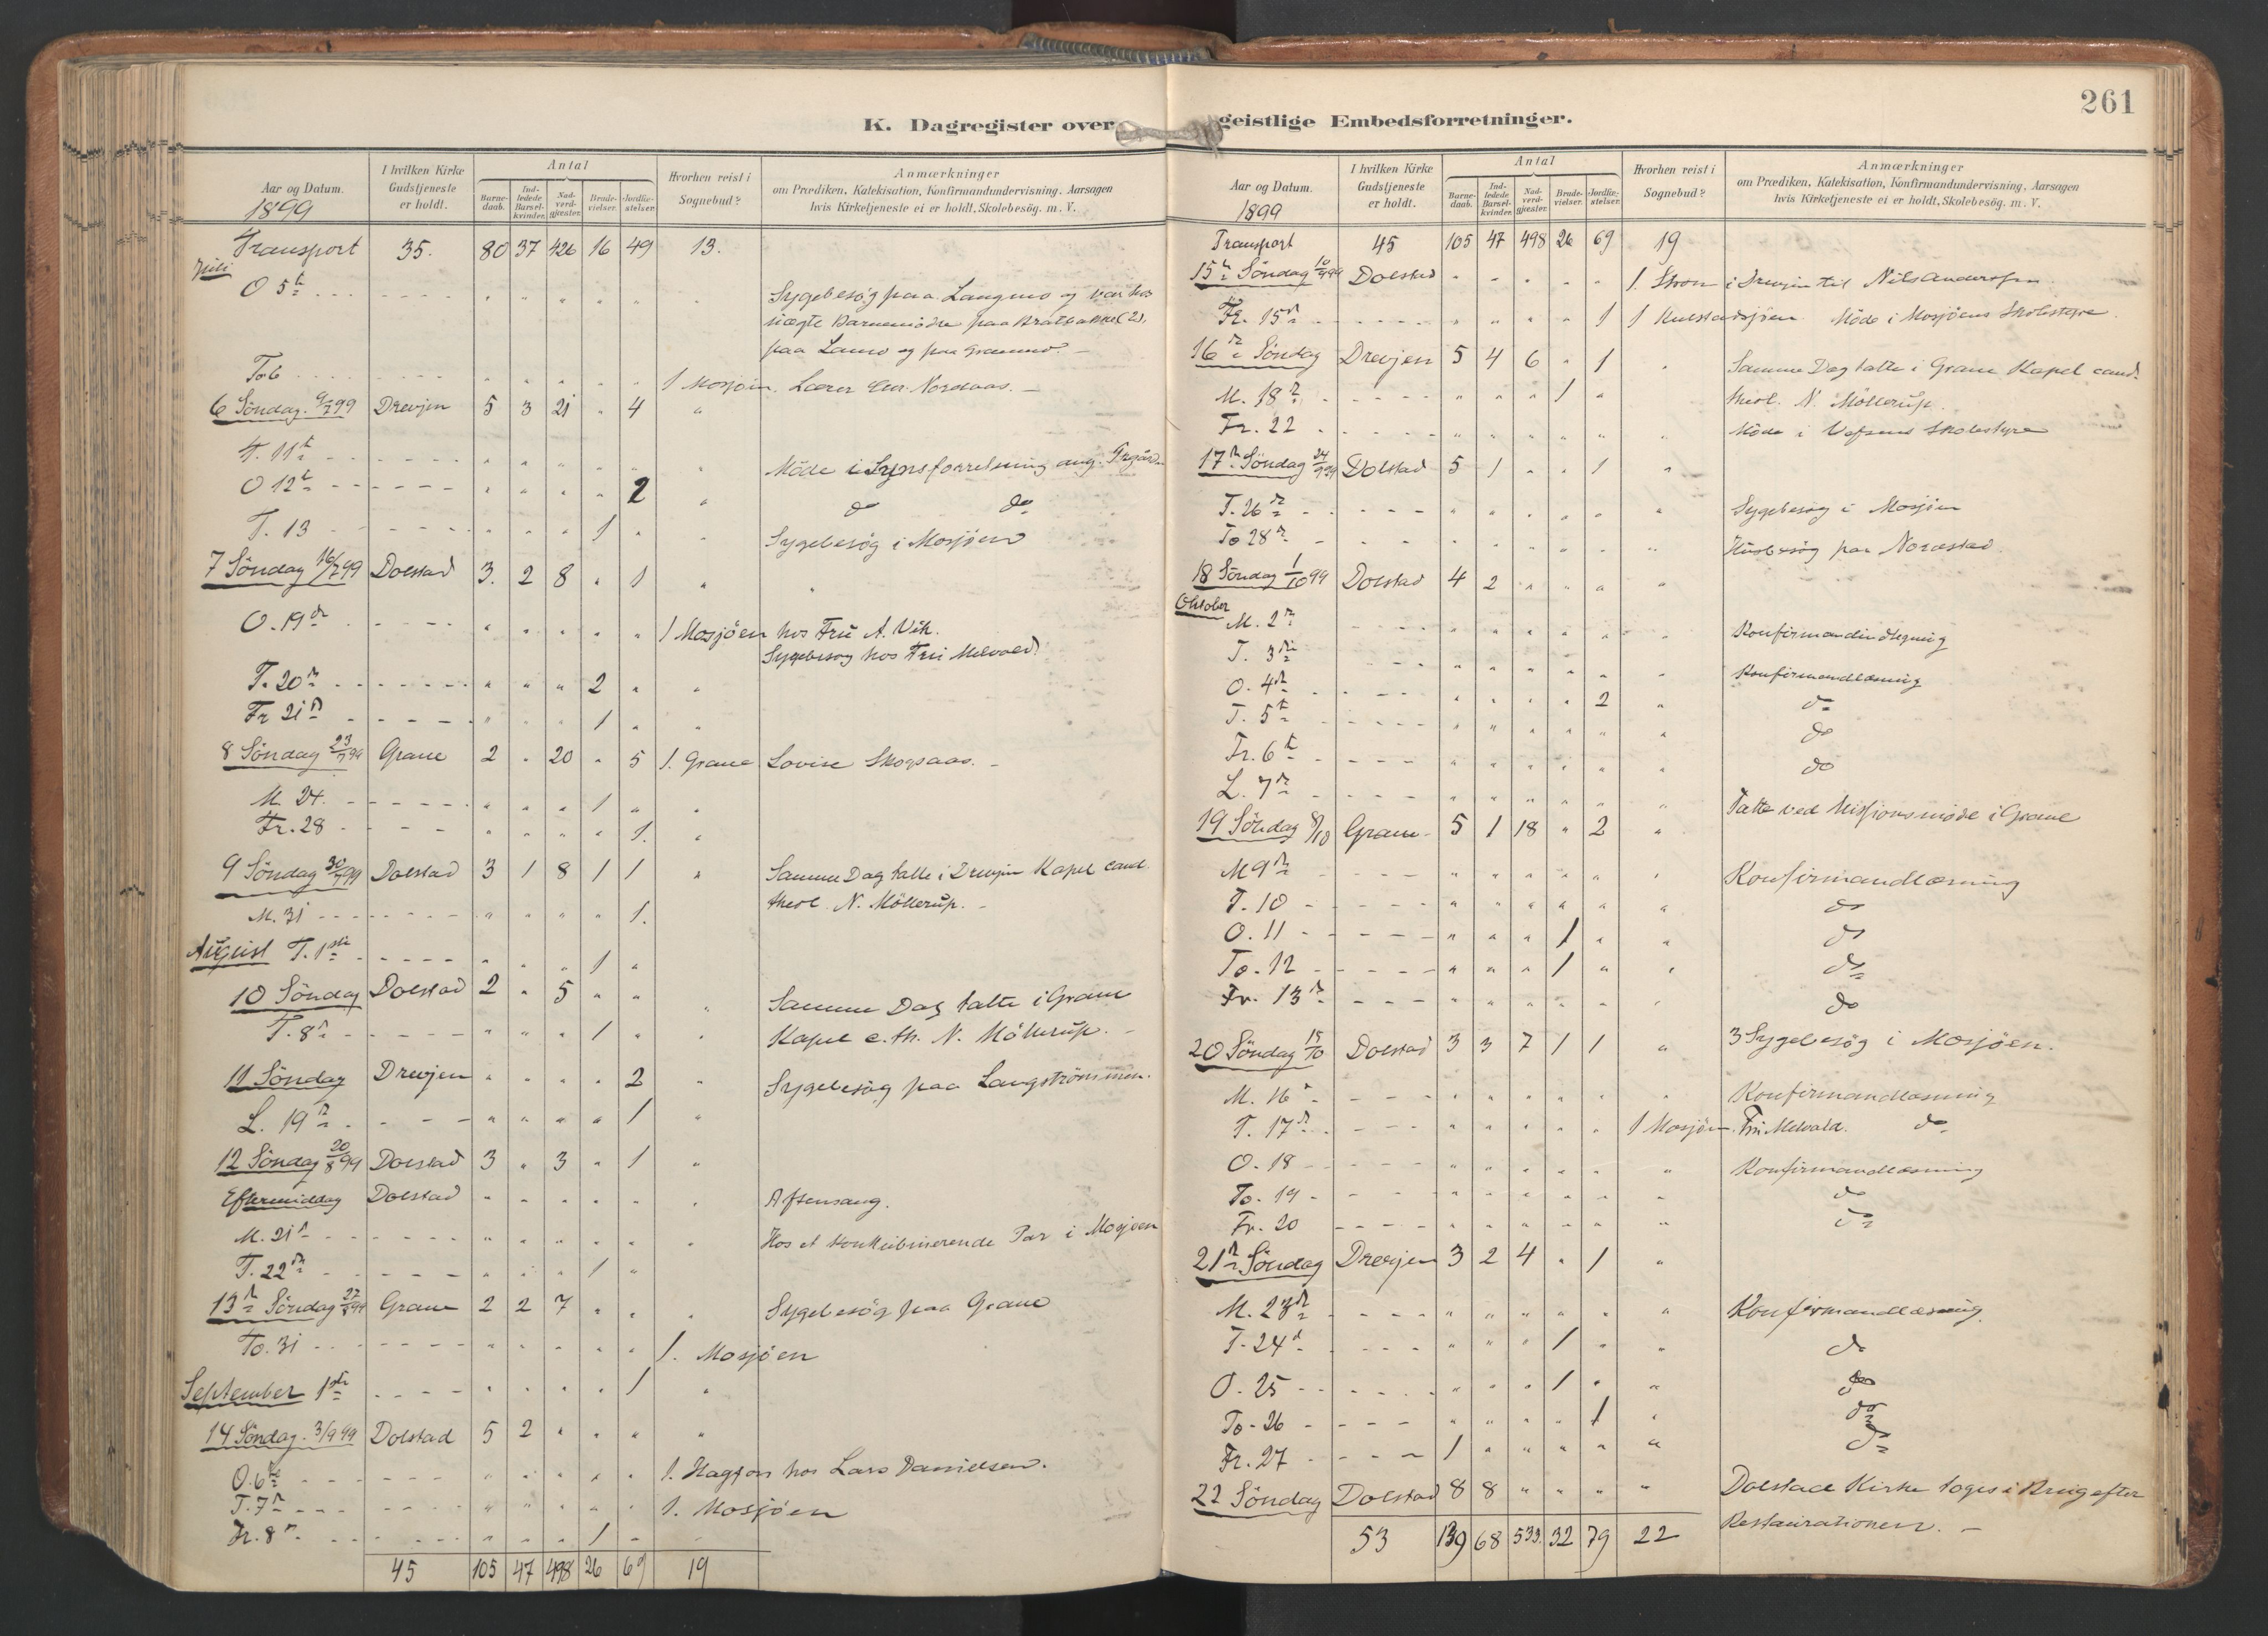 261
K. Dagregister over geistlige Embedsforretninger.
Aar og Datum. 1899 | I hvilken Kirke Gudstjeneste er holdt. | Antal | Barnedaab. | Indledede Barselkvinder. | Nadverdgjæster. | Brudevielser. | Jordfæstelser. | Hvorhen reist i Sognebud? | Anmærkninger om Prædiken, Katekisation, Konfirmandundervisning, Aarsagen hvis Kirketjeneste ei er holdt, Skolebesøg. m. V.
Transport 35. 80 37 426 16 49 13.
Juli
O 5te Sygebesøg paa Langmo og var hos
paa Lamo og paa
To 6 1 Mosjøen. Lærer Chr. Nordaas.
6 Søndag 9/7 99 Drevjen 5 3 21 " 4 "
T. 11te Møde i Synsforretning ang.
O 12te 2 " do do
T. 13 1 " " Sygebesøg i Mosjøen
7 Søndag 16/7 99 Dolstad 3. 2 8 " 1 "
O. 19de 1 Mosjøen hos Frü A. Vik.
Sygebesøg hos Frü Melvold.
T. 20de 2 " "
Fr 21de 1 " "
8 Søndag 23/7 99 Grane 2 " 20 " 5 1. Grane Lovise Skogsaas.
M. 24. 1 " "
Fr. 28 1. "
9 Søndag 30/7 99 Dolstad 3 1 8 1 1 " Samme Dag talte i Drevjen Kapel cand.
theol. N. Møllerüp.
M. 31 1.
August T. 1ste 1 "
10 Søndag Dolstad 2 " 5 " " " Samme Dag talte i Grane
T. 8de 1 " " Kapel c. th. N. Møllerüp.
11 Søndag Drevjen " " " " 2 " Sygebesøg paa Langstrømmen.
L. 19de 1 "
12 Søndag 20/8 99 Dolstad 3 " 3 " 1 "
Eftermiddag Dolstad " " " " " " Aftensang.
M. 21de Hos et konkubinerende Par i Mosjøen
T. 22de 1 "
13de Søndag 27/8 99 Grane 2 2 7 " " " Sygebesøg paa Grane
To. 31 1. Mosjøen
September 1ste 1 "
14 Søndag. 3/9 99 Dolstad 5 2 " " " "
O. 6te 1. Hagfors hos Lars Danielsen.
T. 7de 1. Mosjøen
Fr. 8de 1
45 105 47 498 26 69 19
Aar og Datum. 1899 | I hvilken Kirke Gudstjeneste er holdt. | Antal | Barnedaab. | Indledede Barselkvinder. | Nadverdgjæster. | Brudevielser. | Jordfæstelser. | Hvorhen reist i Sognebud? | Anmærkninger om Prædiken, Katekisation, Konfirmandundervisning, Aarsagen hvis Kirketjeneste ei er holdt, Skolebesøg. m. V.
Transport 45 105 47 498 26 69 19
15de Søndag 10/9 99 Dolstad " " " " " 1. Strom i Drevjen til Nils Andersen.
Fr. 15de 1 1 Kulstadsjøen Møde i Mosjøens Skolestyre.
16de Søndag Drevjen 5 4 6 " 1 " Samme Dag talte i Grane Kapel cand.
M. 18de 1 " theol. N. Møllerüp.
Fr. 22 Møde i Vefsens Skolestyre
17de Søndag 24/9 99 Dolstad 5 1 " " 1 "
T. 26de Sygebesøg i Mosjøen
To 28de Husbesøg paa Nordstad.
18 Søndag 1/10 99 Dolstad 4 2 " " " "
Oktober
M. 2de Konfirmandindtegning
T. 3die Konfirmandlæsning
O. 4de 2 " do
T. 5te do
Fr. 6te do
L. 7de Talte ved Missionsmøde i Grane
19 Søndag 8/10 Grane 5 1 18 " 2 "
M 9de Konfirmandlæsning
T. 10 do
O. 11 1 " " do
To. 12 1 " " do
Fr. 13de do
20 Søndag 15/10 Dolstad 3 3 7 1 1 " 3 Sygebesøg i Mosjøen.
M. 16de Konfirmandlæsning
T. 17de 1 Mosjøen. Frü Melvold. do
O. 18 Konfirmandlæsning
To. 19 do
Fr. 20 do
21de Søndag Drevjen 3 2 4 " 1 "
M. 23de Konfirmandlæsning.
T. 24de 1 " " do
O. 25 1 " " do
To. 26 1 " do
Fr. 27 1 " " " " " do
22 Søndag Dolstad 8 8 " " " " Dolstad Kirke toges i Brug efter
Restaurationen.
53 139 68 533. 32 79 22